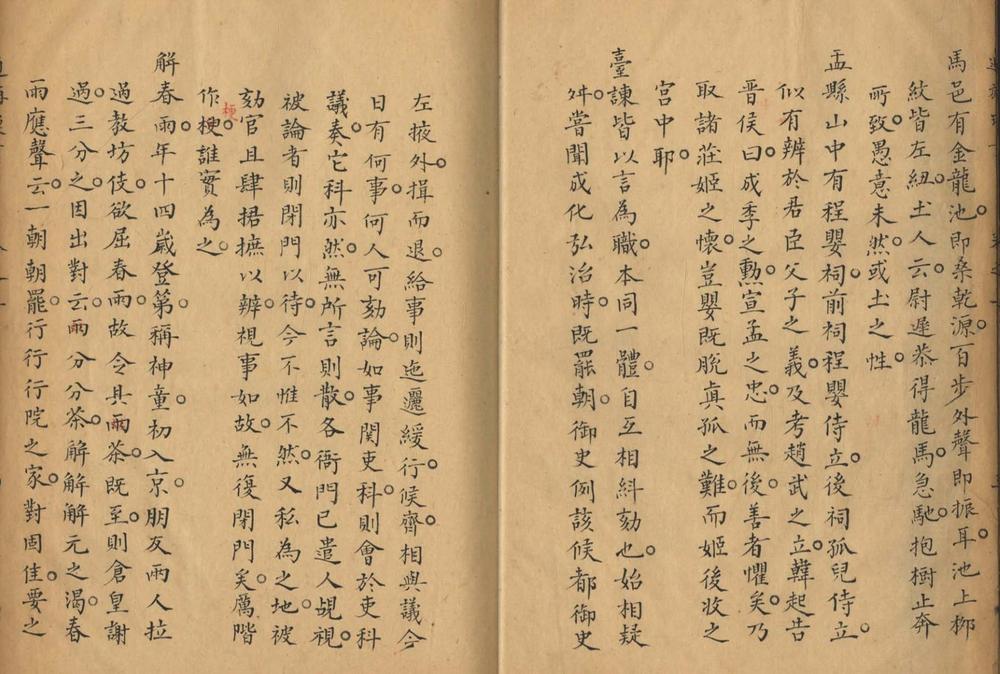 馬邑有金龍池。即桑乾源。百步外聲即振耳。池上柳
紋皆左紐。土人云。尉遲恭得龍馬。急馳。抱樹止奔
所致。愚意未然。或土之性。
盂縣山中有程嬰祠。前祠程嬰侍立。後祠孤兒侍立。
似有辨於君臣父子之義。及考趙武之立。韓起告
晉侯曰。成季之勲。宣孟之忠。而無後。善者懼矣。乃
取諸莊姬之懷。豈嬰既脫眞孤之難。而姬後收之
宫中耶。
臺諫皆以言為職。本同一體。自互相糾劾也。始相疑
舛。嘗聞成化弘治時。既罷朝。御史例該候都御史
左掖外。揖而退。給事則迤邐緩行。候齊相與議今
日有何事。何人可劾論。如事関吏科。則會於吏科
議奏。它科亦然。無所言則散。各衙門已遣人覘視。
被論者則閉門以待。今不惟不然。又私為之地。被
劾官且肆掯摭以辨。視事如故。無復閉門矣。厲階
作梗。誰實為之。
梗
解春雨。年十四歲登第。稱神童。初入京。朋友兩人拉
過教坊。伎欲屈春雨。故令具兩茶。既至。則倉皇謝
過。三分之。因出對云。兩分分茶。解解解元之渴。春
雨應聲云。一朝朝罷。行行行院之家。對固佳。要之